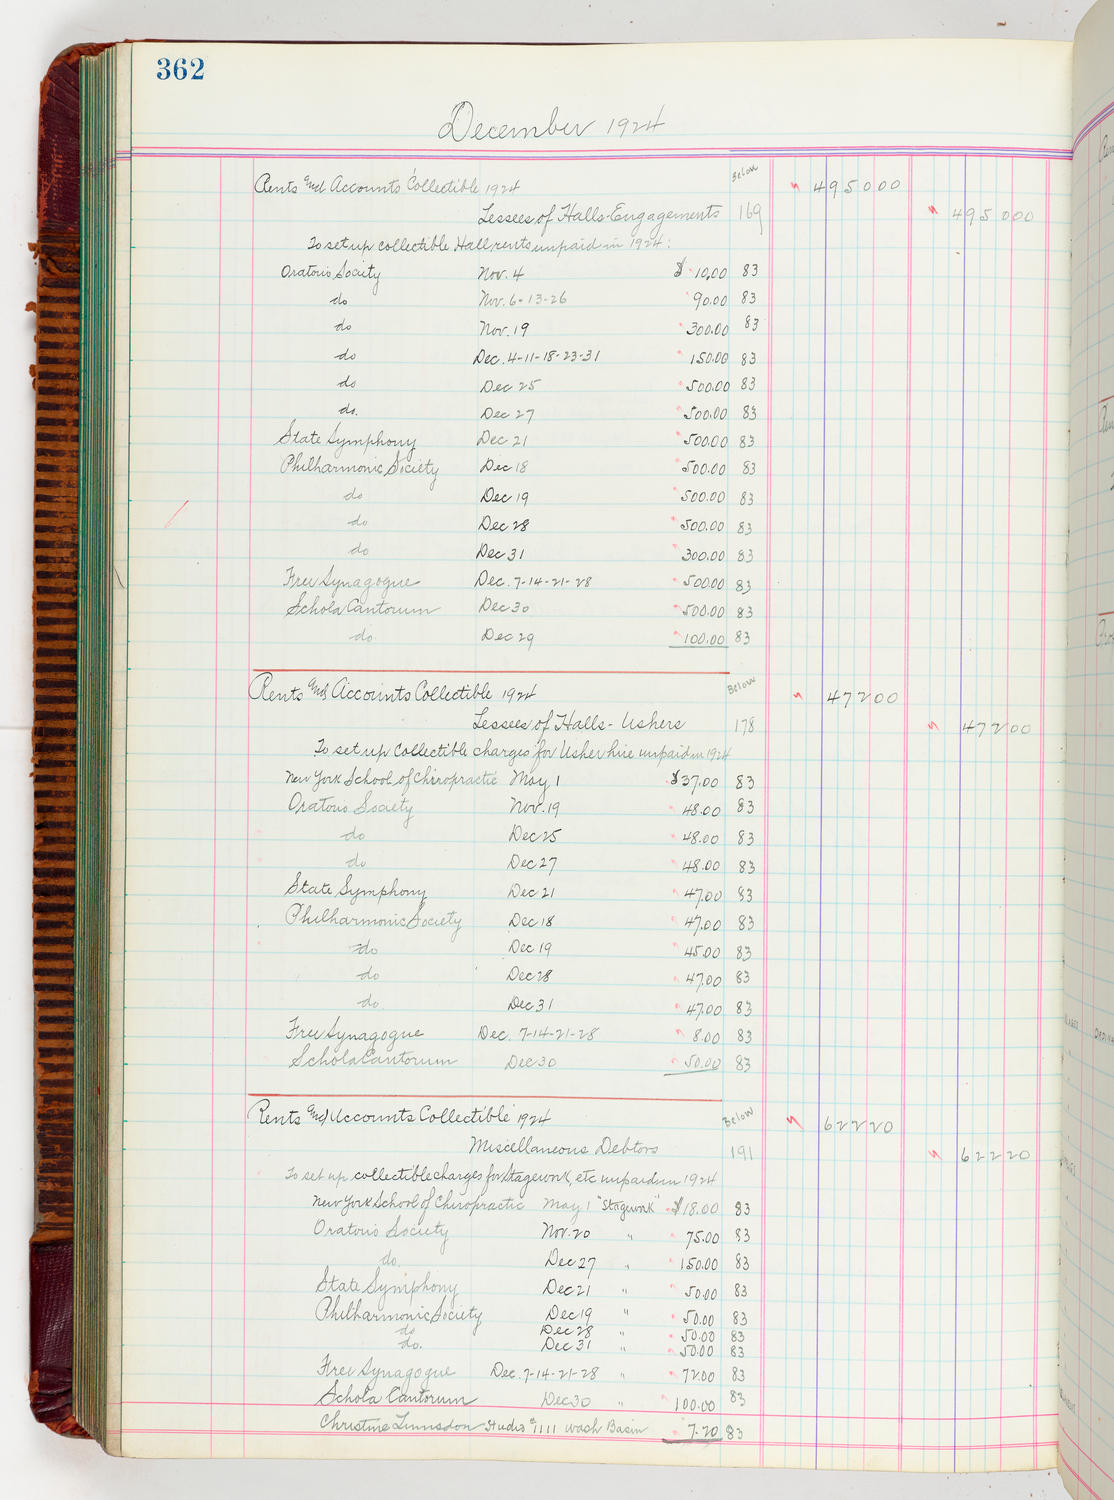 362
December 1924
Rents and Accounts Collectible 1924 Below 4950 00
Lessees of Halls-Engagements 169 4950 00
To set up collectible Hall rents unpaid in 1924:
Oratorio Society Nov. 4 $ 10.00 83
do Nov. 6-13-26 90.00 83
do Nov. 19 300.00 83
do Dec. 4-11-18-23-31 150.00 83
do Dec 25 500.00 83
do. Dec 27 500.00 83
State Symphony Dec 21 500.00 83
Philharmonic Society Dec 18 500.00 83
do Dec 19 500.00 83
do Dec 28 500.00 83
do Dec 31 300.00 83
Free Synagogue Dec. 7-14-21-28 500.00 83
Schola Cantorum Dec 30 500.00 83
do. Dec 29 100.00 83
Rents and Accounts Collectible 1924 Below 472 00
Lessees of Halls - Ushers 178 472 00
To set up Collectible charges for Usher hire unpaid in 1924
New York School of Chiropractic May 1 $37.00 83
Oratorio Society Nov. 19 48.00 83
do Dec 25 48.00 83
do Dec 27 48.00 83
State Symphony Dec 21 47.00 83
Philharmonic Society Dec 18 47.00 83
do Dec 19 45.00 83
do Dec 28 47.00 83
do. Dec 31 47.00 83
Free Synagogue Dec. 7-14-21-28 8.00 83
Schola Cantorum Dec 30 50.00 83
Rents and Accounts Collectible 1924 Below 622 20
Miscellaneous Debtors 191 622 20
To set up collectible charges for Stagework, etc unpaid in 1924
New York School of Chiropractic May 1 "Stagework" $18.00 83
Oratorio Society Nov. 20 " 75.00 83
do. Dec 27 " 150.00 83
State Symphony Dec 21 " 50.00 83
Philharmonic Society Dec 19 " 50.00 83
do Dec 28 " 50.00 83
do. Dec 31 " 50.00 83
Free Synagogue Dec. 7-14-21-28 " 72.00 83
Schola Cantorum Dec 30 " 100.00 83
Christine Studio # 1111 Wash Basin 7.20 83